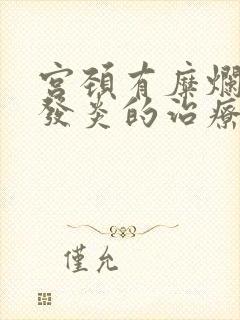 宮頚有糜爛
發炎的治療
僅允